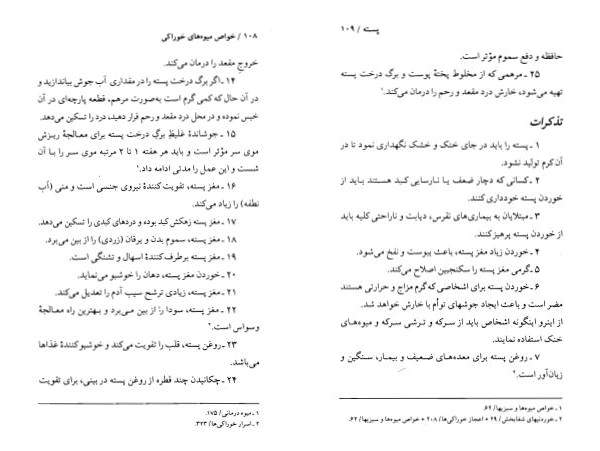 ۱۰۸ / خواص میوه‌های خوراکی
خروج مقعد را درمان می‌کند.
۱۴ ـ اگر برگ درخت پسته را در مقداری آب جوش بیاندازید و
در آن حال که کمی گرم است به‌صورت مرهم، قطعه پارچه‌ای در آن
خیس نموده و در محل درد مقعد و رحم قرار دهید، درد را تسکین می‌دهد.
۱۵ ـ جوشاندهٔ غلیظ برگ درخت پسته برای معالجهٔ ریزش
موی سر مؤثر است و باید هر هفته ۱ تا ۲ مرتبه موی سر را با آن
شست و این عمل را مدتی ادامه داد.۱
۱۶ ـ مغز پسته، تقویت کنندهٔ نیروی جنسی است و منی (آب
نطفه) را زیاد می‌کند.
۱۷ ـ مغز پسته زهکش کبد بوده و دردهای کبدی را تسکین می‌دهد.
۱۸ ـ مغز پسته، سموم بدن و یرقان (زردی) را از بین می‌برد.
۱۹ ـ مغز پسته برطرف کنندهٔ اسهال و تشنگی است.
۲۰ ـ خوردن مغز پسته، دهان را خوشبو می‌نماید.
۲۱ ـ مغز پسته، زیادی ترشح سیب آدم را تعدیل می‌کند.
۲۲ ـ مغز پسته، سودا را از بین می‌برد و بهترین راه معالجهٔ
وسواس است.۲
۲۳ ـ روغن پسته، قلب را تقویت می‌کند و خوشبو کنندهٔ غذاها
می‌باشد.
۲۴ ـ چکانیدن چند قطره از روغن پسته در بینی، برای تقویت
۱ ـ میوه درمانی / ۱۷۵.
۲ ـ اسرار خوراکی‌ها / ۳۲۳.
پسته / ۱۰۹
حافظه و دفع سموم مؤثر است.
۲۵ ـ مرهمی که از مخلوط پختهٔ پوست و برگ درخت پسته
تهیه می‌شود، خارش درد مقعد و رحم را درمان می‌کند.۱
تذکرات
۱ ـ پسته را باید در جای خنک و خشک نگهداری نمود تا در
آن کرم تولید نشود.
۲ ـ کسانی که دچار ضعف یا نارسایی کبد هستند باید از
خوردن پسته خودداری کنند.
۳ ـ مبتلایان به بیماری‌های نقرس، دیابت و ناراحتی کلیه باید
از خوردن پسته پرهیز کنند.
۴ ـ خوردن زیاد مغز پسته، باعث یبوست و نفخ می‌شود.
۵ ـ گرمی مغز پسته را سکنجبین اصلاح می‌کند.
۶ ـ خوردن پسته برای اشخاصی که گرم مزاج و حرارتی هستند
مضر است و باعث ایجاد جوشهای توأم با خارش خواهد شد.
از اینرو اینگونه اشخاص باید از سرکه و ترشی سرکه و میوه‌های
خنک استفاده نمایند.
۷ ـ روغن پسته برای معده‌های ضعیف و بیمار، سنگین و
زیان‌آور است.۲
۱ ـ خواص میوه‌ها و سبزیها / ۶۲.
۲ ـ خوردنیهای شفابخش / ۲۹ * اعجاز خوراکی‌ها / ۲۰۸ * خواص میوه‌ها و سبزیها / ۶۲.